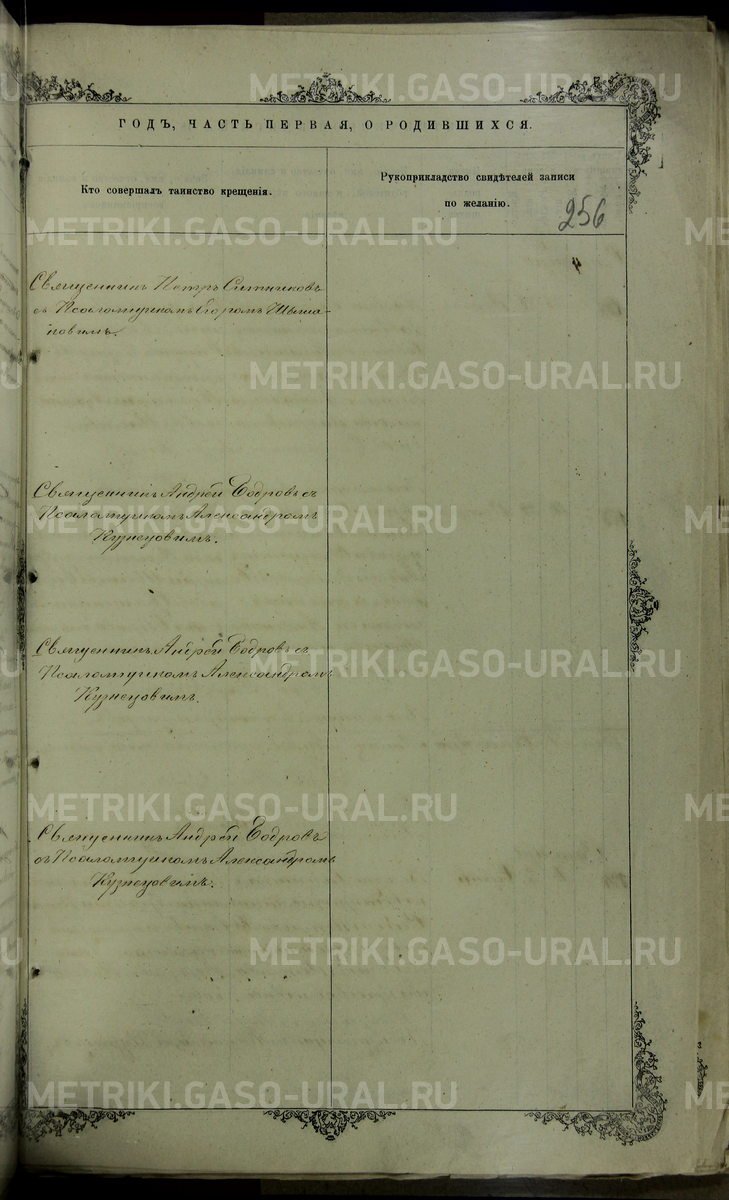 ГОДЪ, ЧАСТЬ ПЕРВАЯ, О РОДИВШИХСЯ.
Кто совершалъ таинство крещенія.
Рукоприкладство свидѣтелей записи
по желанію.
256
Священникъ Петръ Ситниковъ
съ Псаломщикомъ Егоромъ
Священникъ Андрей Бодровъ съ
Псаломщикомъ Александромъ
Кузнецовымъ.
Священникъ Андрей Бодровъ съ
Псаломщикомъ Александромъ
Кузнецовымъ.
Священникъ Андрей Бодровъ
съ Псаломщикомъ Александромъ
Кузнецовымъ.
METRIKI.GASO-URAL.RU
METRIKI.GASO-URAL.RU
METRIKI.GASO-URAL.RU
METRIKI.GASO-URAL.RU
METRIKI.GASO-URAL.RU
METRIKI.GASO-URAL.RU
METRIKI.GASO-URAL.RU
METRIKI.GASO-URAL.RU